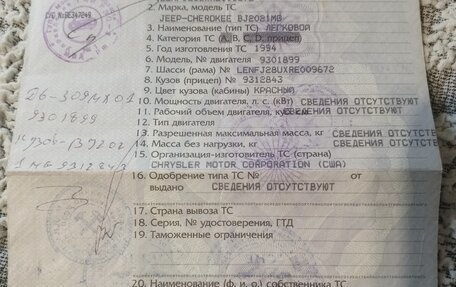 2. Марка, модель ТС
JEEP-CHEROKEE BJ2021MB
3. Наименование (тип ТС) ЛЕГКОВОЙ
4. Категория ТС (А, В, С, D, прицеп)
5. Год изготовления ТС 1994
6. Модель, № двигателя 9301899
7. Шасси (рама) № LENFJ28UXRE009672
8. Кузов (прицеп) № 9312843
9. Цвет кузова (кабины) КРАСНЫЙ
10. Мощность двигателя, л. с. (кВт) СВЕДЕНИЯ ОТСУТСТВУЮТ
11. Рабочий объем двигателя, куб. см СВЕДЕНИЯ ОТСУТСТВУЮТ
12. Тип двигателя
13. Разрешенная максимальная масса, кг СВЕДЕНИЯ ОТСУТСТВУЮТ
14. Масса без нагрузки, кг СВЕДЕНИЯ ОТСУТСТВУЮТ
15. Организация-изготовитель ТС (страна)
CHRYSLER MOTOR CORPORATION (США)
16. Одобрение типа ТС № от
выдано СВЕДЕНИЯ ОТСУТСТВУЮТ
17. Страна вывоза ТС
18. Серия, № удостоверения, ГТД
19. Таможенные ограничения
20. Наименование (ф. и. о.) собственника ТС
9301899